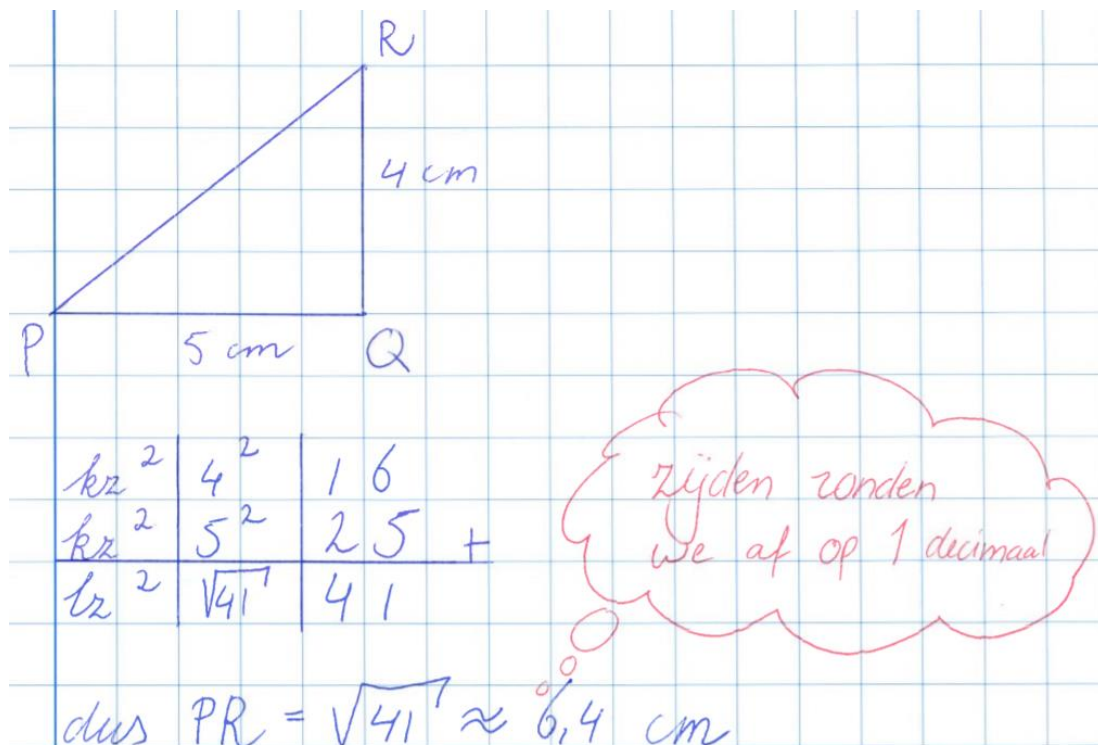 R
4 cm
P 5 cm Q
kz² 4² 16
kz² 5² 25 +
lz² √41 41
zijden ronden
we af op 1 decimaal
dus PR = √41 ≈ 6,4 cm